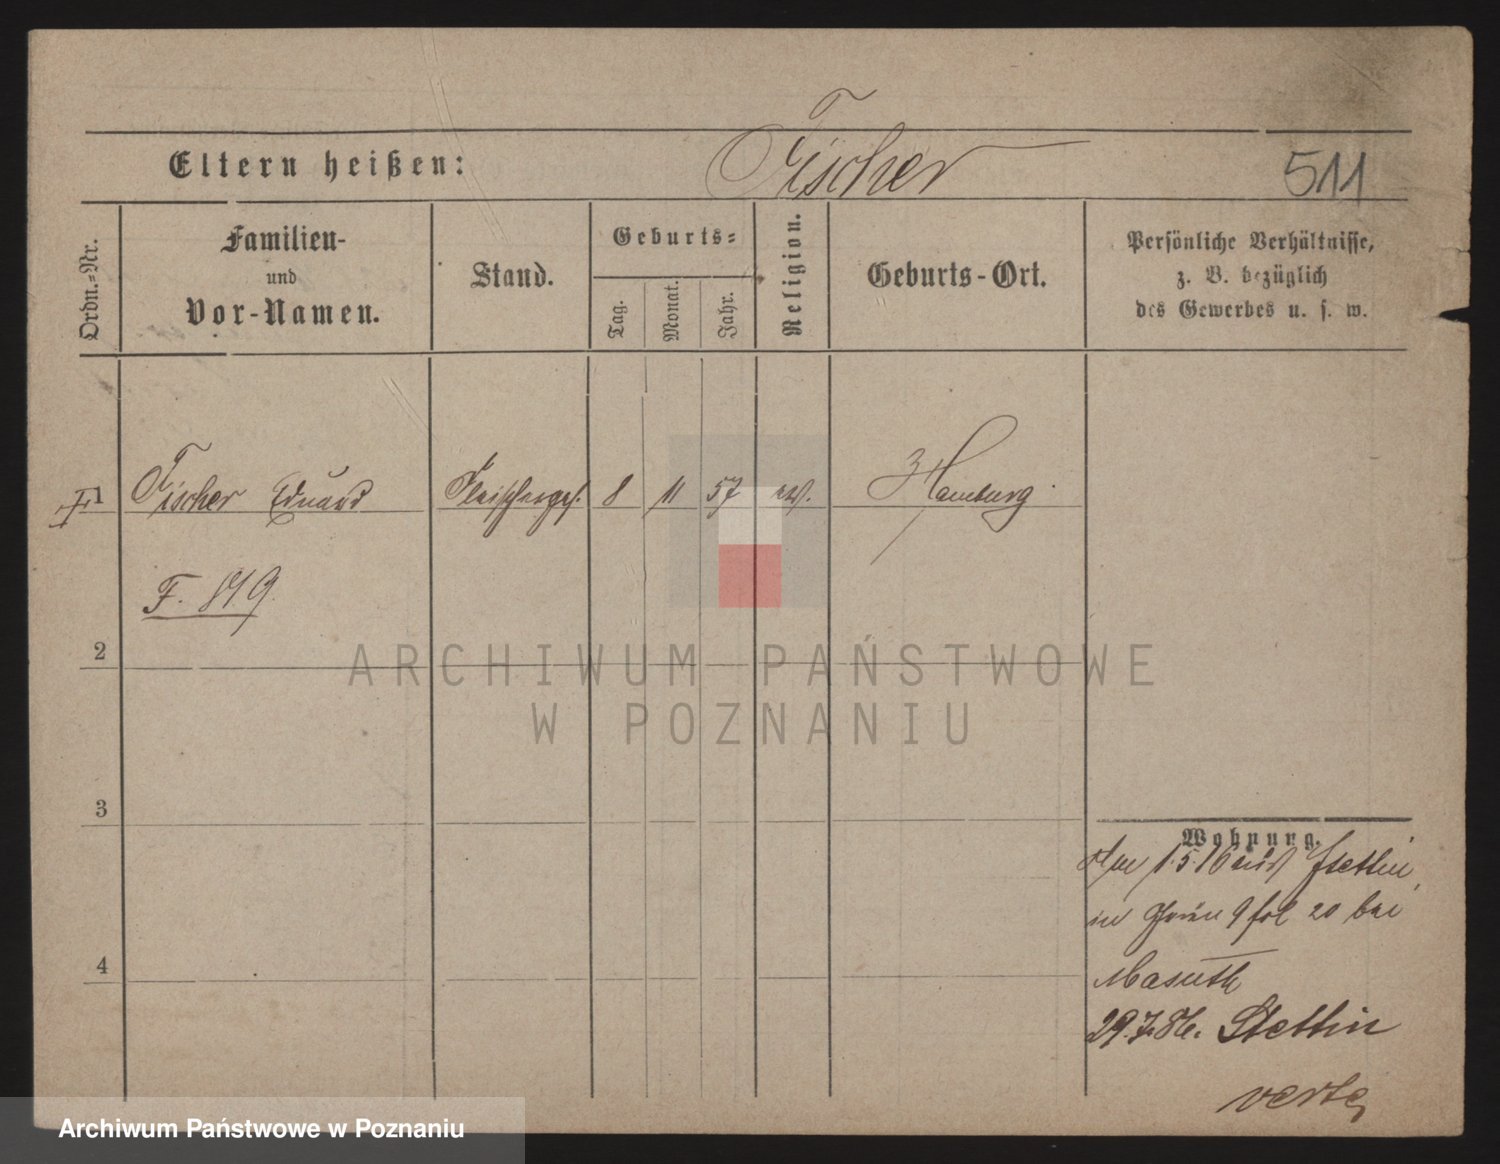 Eltern heißen: Fischer 511
Ordn.-Nr.
Familien-
und
Vor-Namen.
Stand.
Geburts-
Tag.
Monat.
Jahr.
Religion.
Geburts-Ort.
Persönliche Verhältnisse,
z. B. bezüglich
des Gewerbes u. s. w.
1 Fischer Eduard Fleischerges. 8 11 57 ev. Hamburg
F. 819.
2
3
4
Wohnung.
1.5.86 aus Stettin,
in 9 fol 20 bei
Masuth
29.7.86. Stettin
verte
ARCHIWUM PAŃSTWOWE
W POZNANIU
Archiwum Państwowe w Poznaniu